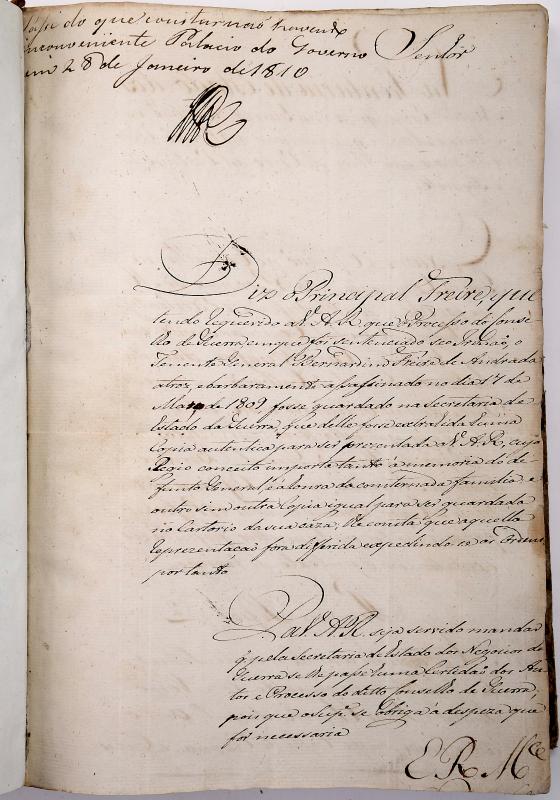 Passe do que constar naõ havendo
inconveniente Palacio do Governo
em 28 de Janeiro de 1810
Senhor
Diz o Principal Freire, que
tendo requerido a V. A. R. que o Processo do Conse-
lho de Guerra em que foi sentenciado seo Irmaõ, o
Tenente General Bernardim Freire de Andrada
atroz, e barbaramente assassinado no dia 17 de
Março de 1809, fosse guardado na Secretaria de
Estado da Guerra, que delle fosse extrahida huma
Copia autentica para ser prezentada a V. A. R., cujo
Regio conceito importa tanto á memoria do de-
funto General e a honra da consternada familia e
outro sim outra Copia igual para ser guardada
no Cartorio da sua Caza, lhe consta que aquella
Reprezentaçaõ fora differida expedindo-se as Ordens
por tanto
Pa V. A. R. seja servido mandar
q̃ pela Secretaria de Estado dos Negocios da
Guerra se lhe passe huma Certidaõ dos Au-
tos e Processo do ditto Conselho de Guerra,
pois que o Sup.e se obriga á despeza que
for necessaria
E R M.ce